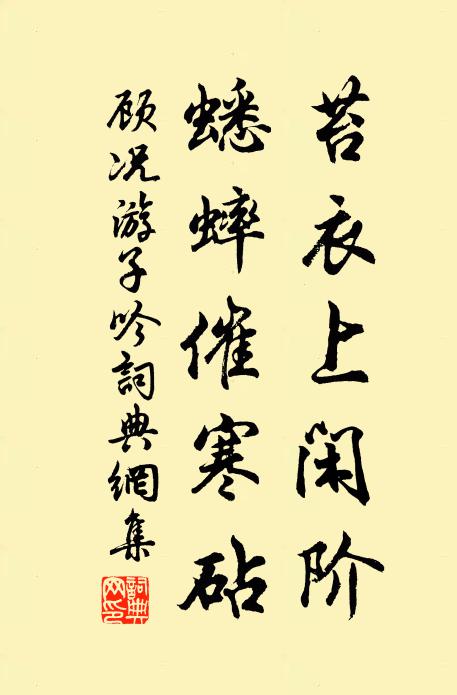 苔衣上闲阶
蟋蟀催寒砧
顾况游子吟詞典網集
詞典网印